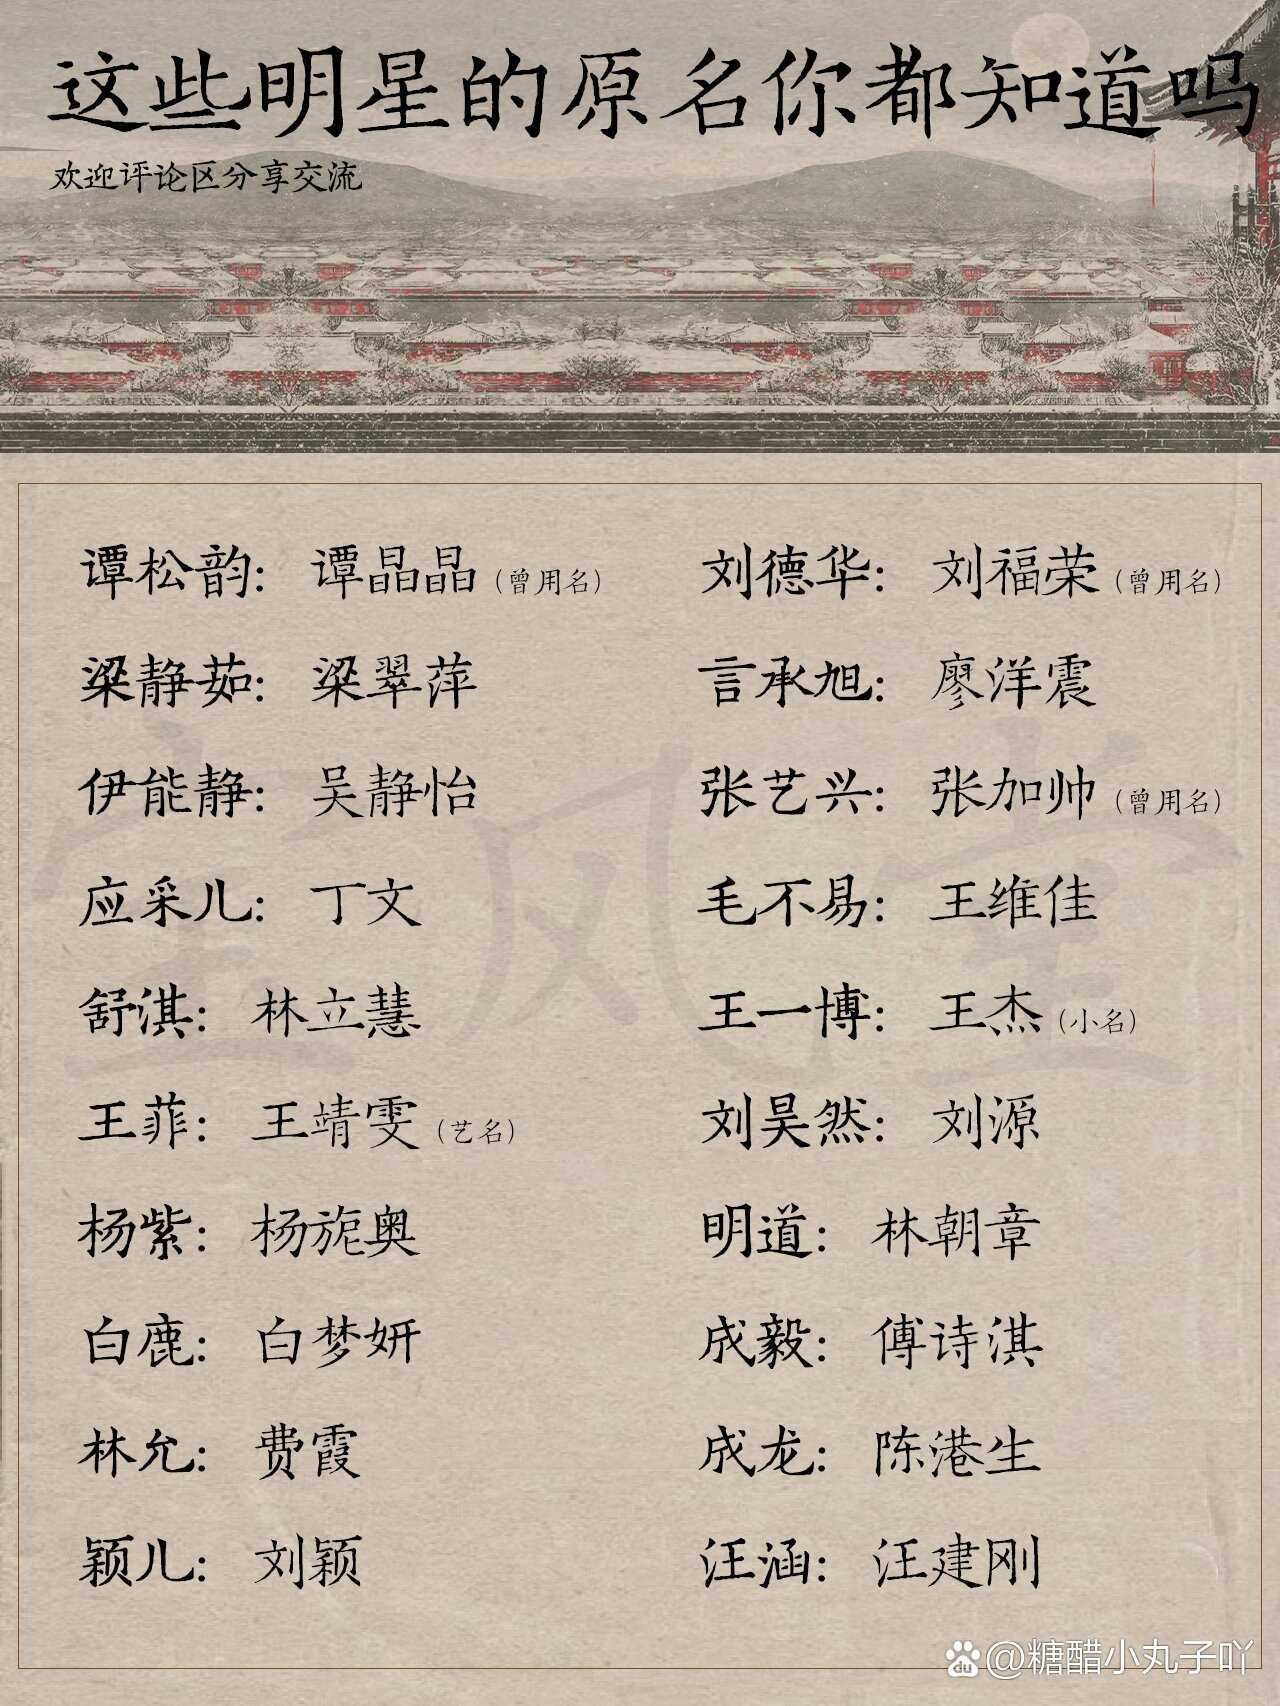 这些明星的原名你都知道吗
欢迎评论区分享交流
谭松韵： 谭晶晶（曾用名）
刘德华： 刘福荣（曾用名）
梁静茹： 梁翠萍
言承旭： 廖洋震
伊能静： 吴静怡
张艺兴： 张加帅（曾用名）
应采儿： 丁文
毛不易： 王维佳
舒淇： 林立慧
王一博： 王杰（小名）
王菲： 王靖雯（艺名）
刘昊然： 刘源
杨紫： 杨旎奥
明道： 林朝章
白鹿： 白梦妍
成毅： 傅诗淇
林允： 费霞
成龙： 陈港生
颖儿： 刘颖
汪涵： 汪建刚
宝风堂
du @糖醋小丸子吖